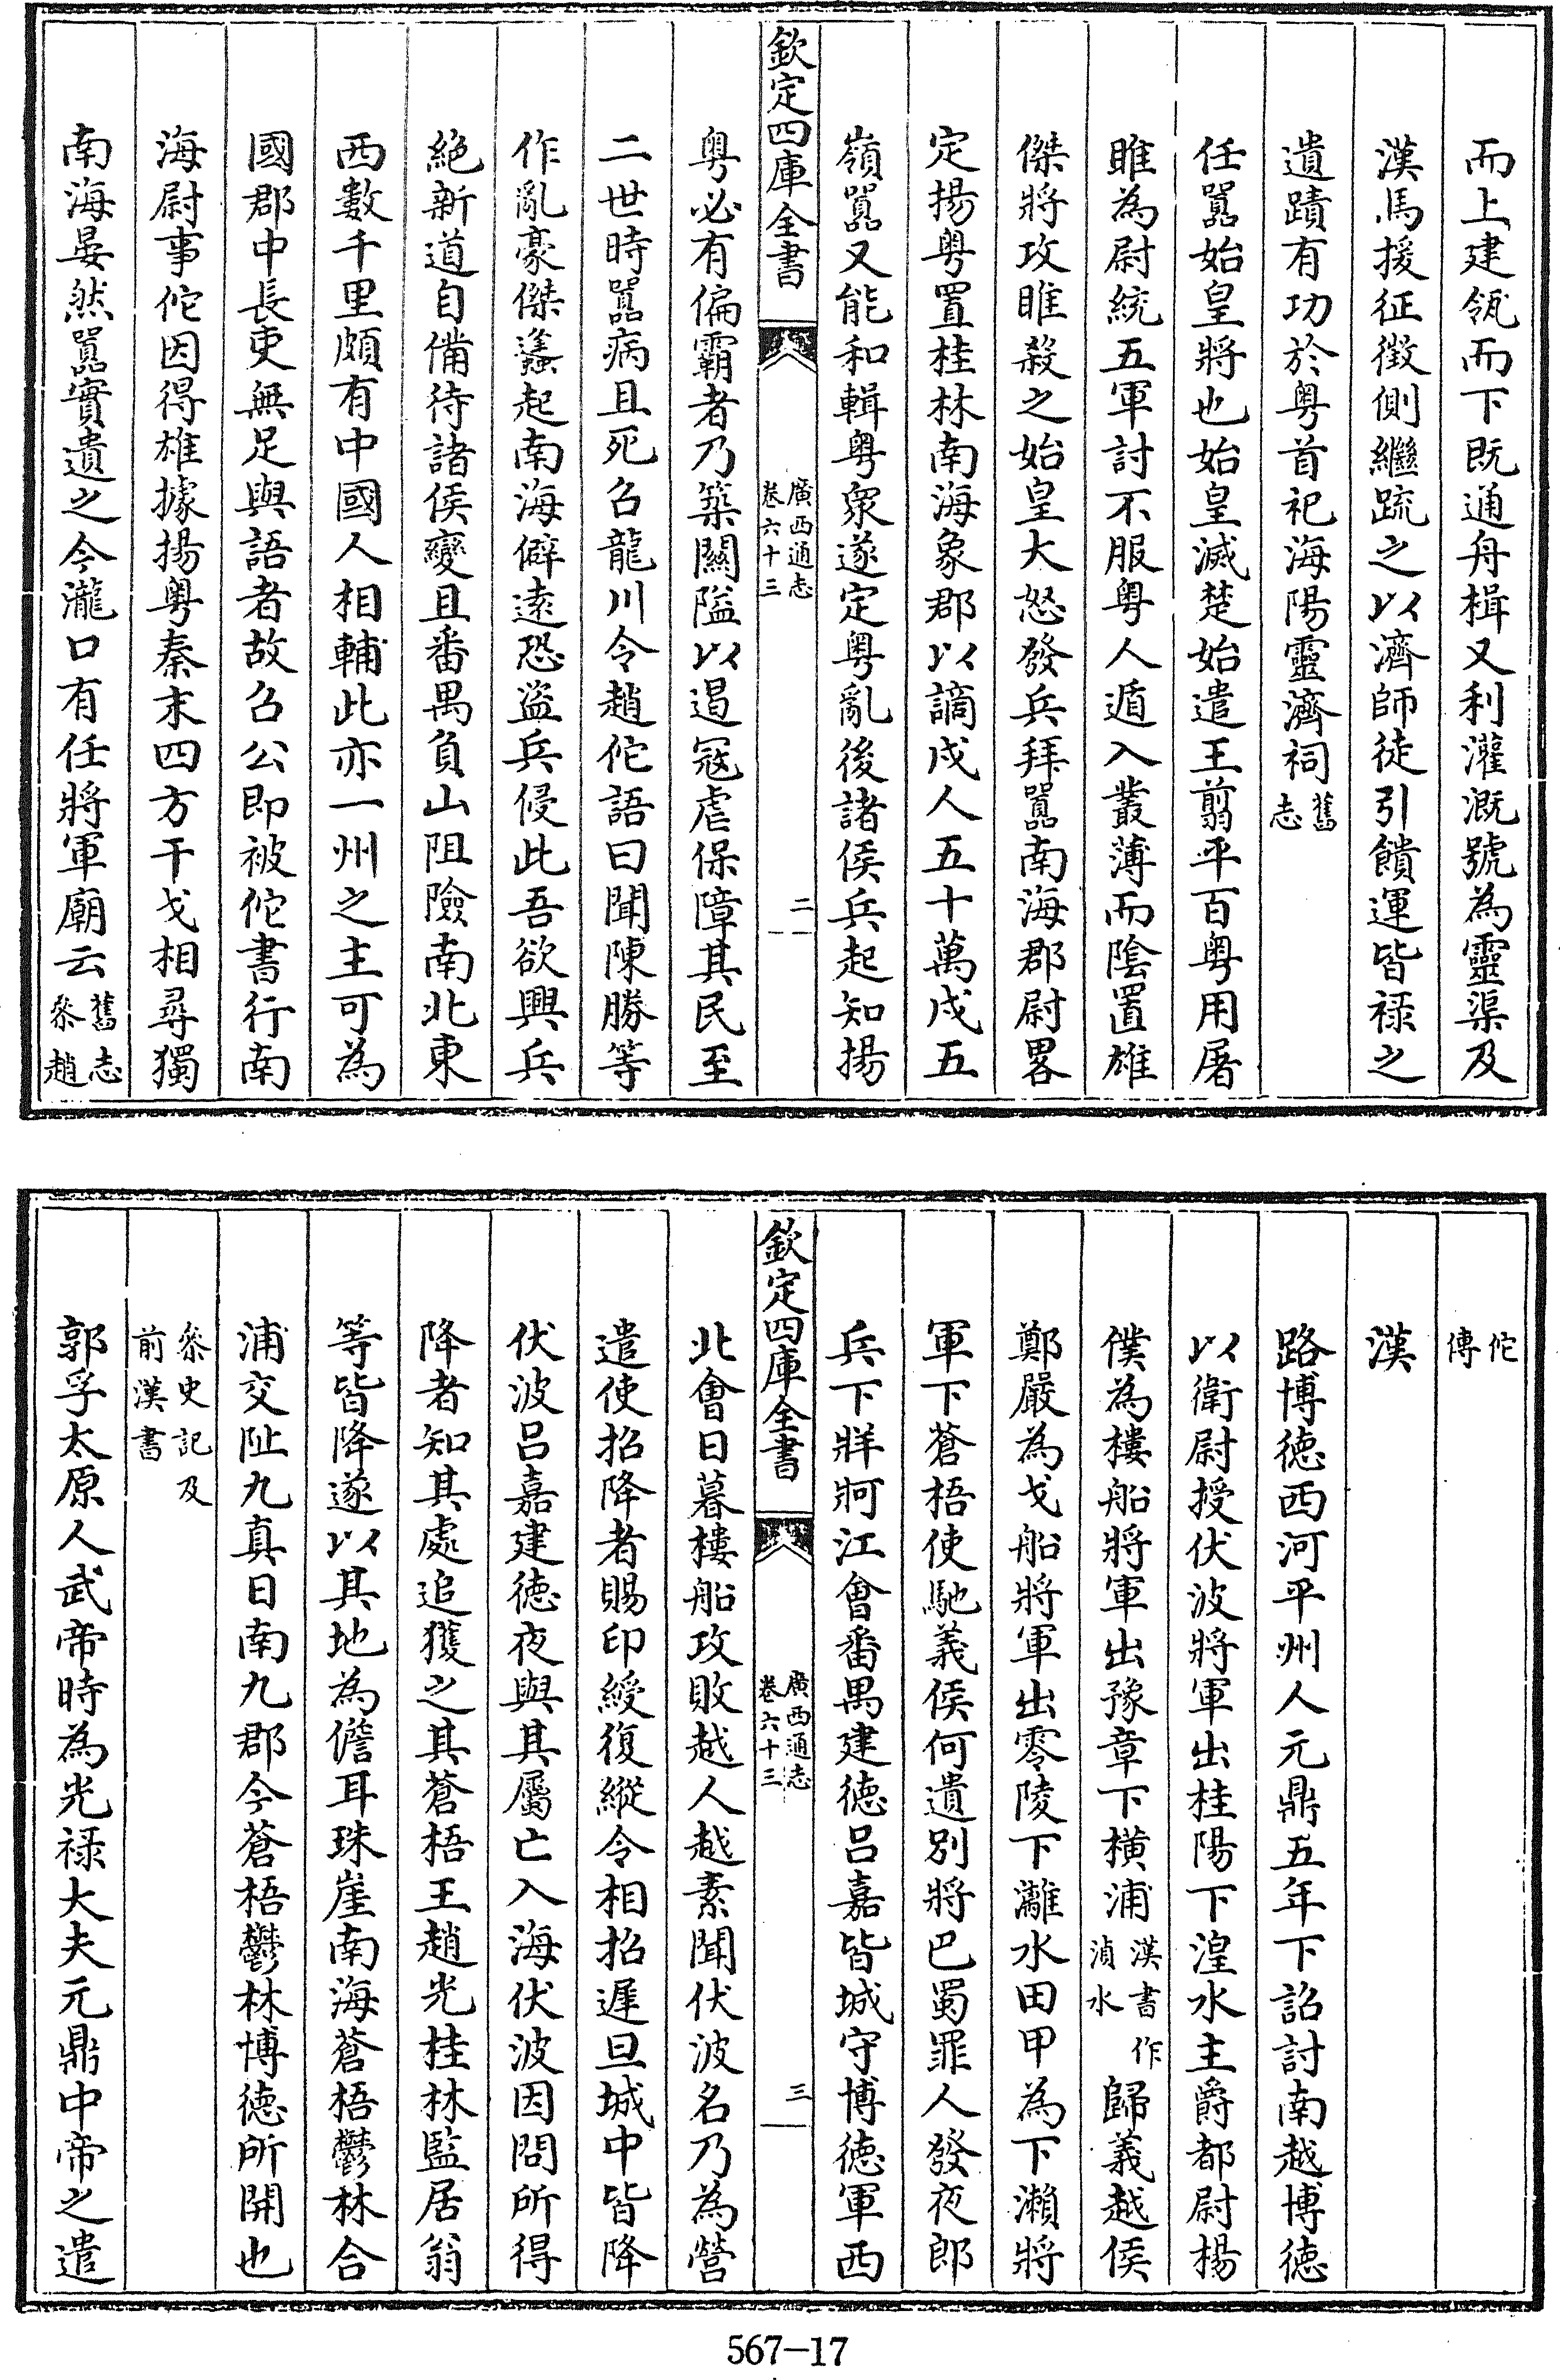 而上建瓴而下既通舟楫又利灌溉號為靈渠及
漢馬援征徵側繼疏之以濟師徒引饋運皆祿之
遺蹟有功於粤首祀海陽靈濟祠舊志
任嚻始皇將也始皇滅楚始遣王翦平百粤用屠
睢為尉統五軍討不服粤人遁入叢薄而陰置雄
傑將攻睢殺之始皇大怒發兵拜嚻南海郡尉畧
定揚粤置桂林南海象郡以謫戍人五十萬戍五
嶺嚻又能和輯粤衆遂定粤亂後諸侯兵起知揚
欽定四庫全書
廣西通志
卷六十三
二
粤必有偏霸者乃築關隘以遏寇虐保障其民至
二世時嚻病且死召龍川令趙佗語曰聞陳勝等
作亂豪傑蠭起南海僻遠恐盜兵侵此吾欲興兵
絶新道自備待諸侯變且番禺負山阻險南北東
西數千里頗有中國人相輔此亦一州之主可為
國郡中長吏無足與語者故召公即被佗書行南
海尉事佗因得雄據揚粤秦末四方干戈相尋獨
南海晏然嚻實遺之今瀧口有任將軍廟云舊志
叅趙
佗
傳
漢
路博徳西河平州人元鼎五年下詔討南越博徳
以衛尉授伏波將軍出桂陽下湟水主爵都尉楊
僕為樓船將軍出豫章下橫浦漢書作
湞水歸義越侯
鄭嚴為戈船將軍出零陵下灕水田甲為下瀨將
軍下蒼梧使馳義侯何遺别將巴蜀罪人發夜郎
兵下牂牁江會番禺建徳吕嘉皆城守博徳軍西
欽定四庫全書
廣西通志
卷六十三
三
北會日暮樓船攻敗越人越素聞伏波名乃為營
遣使招降者賜印綬復縱令相招遲旦城中皆降
伏波吕嘉建徳夜與其屬亡入海伏波因問所得
降者知其處追獲之其蒼梧王趙光桂林監居翁
等皆降遂以其地為儋耳珠崖南海蒼梧鬱林合
浦交阯九真日南九郡今蒼梧鬱林博徳所開也
叅史記及
前漢書
郭孚太原人武帝時為光禄大夫元鼎中帝之遣
567-17